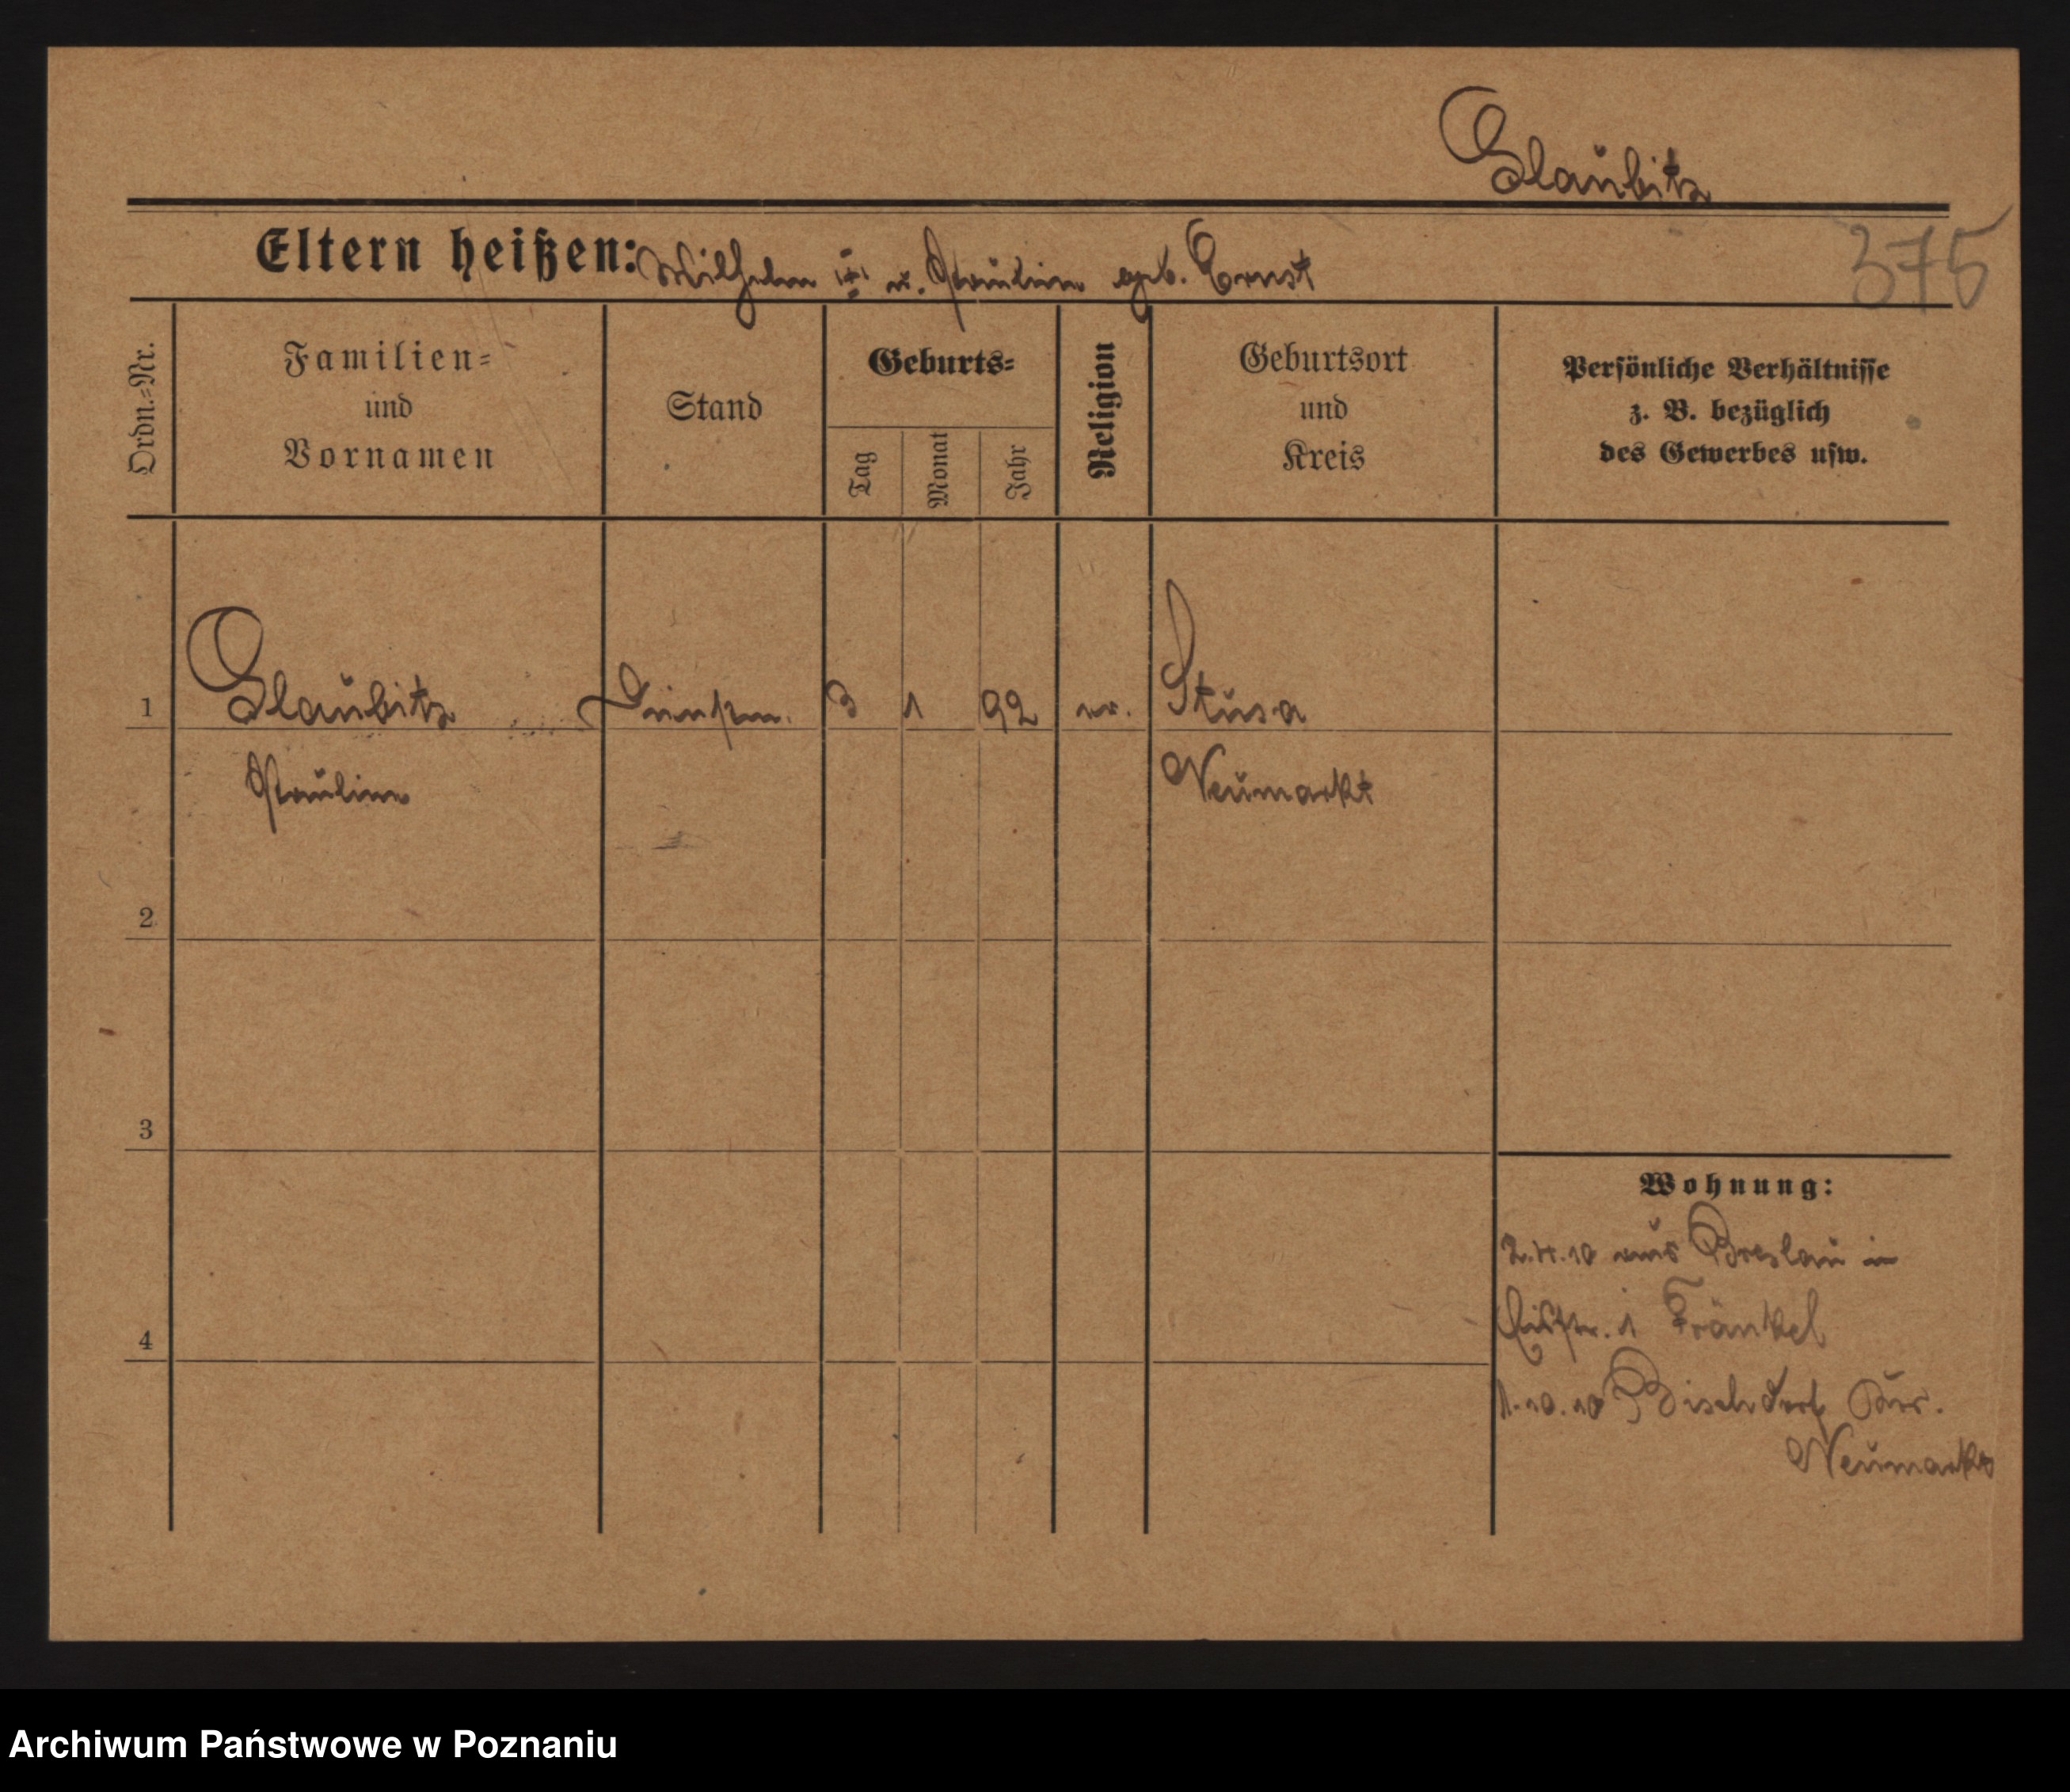 Glaubitz
375
Eltern heißen: Wilhelm u. Pauline geb. Ernst
Ordn.=Nr.
Familien=
und
Vornamen
Stand
Geburts=
Tag
Monat
Jahr
Religion
Geburtsort
und
Kreis
Persönliche Verhältnisse
z. B. bezüglich
des Gewerbes usw.
1 Glaubitz 3 1 92 ev. Stusa
Pauline Neumarkt
2
3
4
Wohnung:
2.4.10 aus Breslau in
1 Fränkel
1.10.10 Bischdorf
Neumarkt
Archiwum Państwowe w Poznaniu